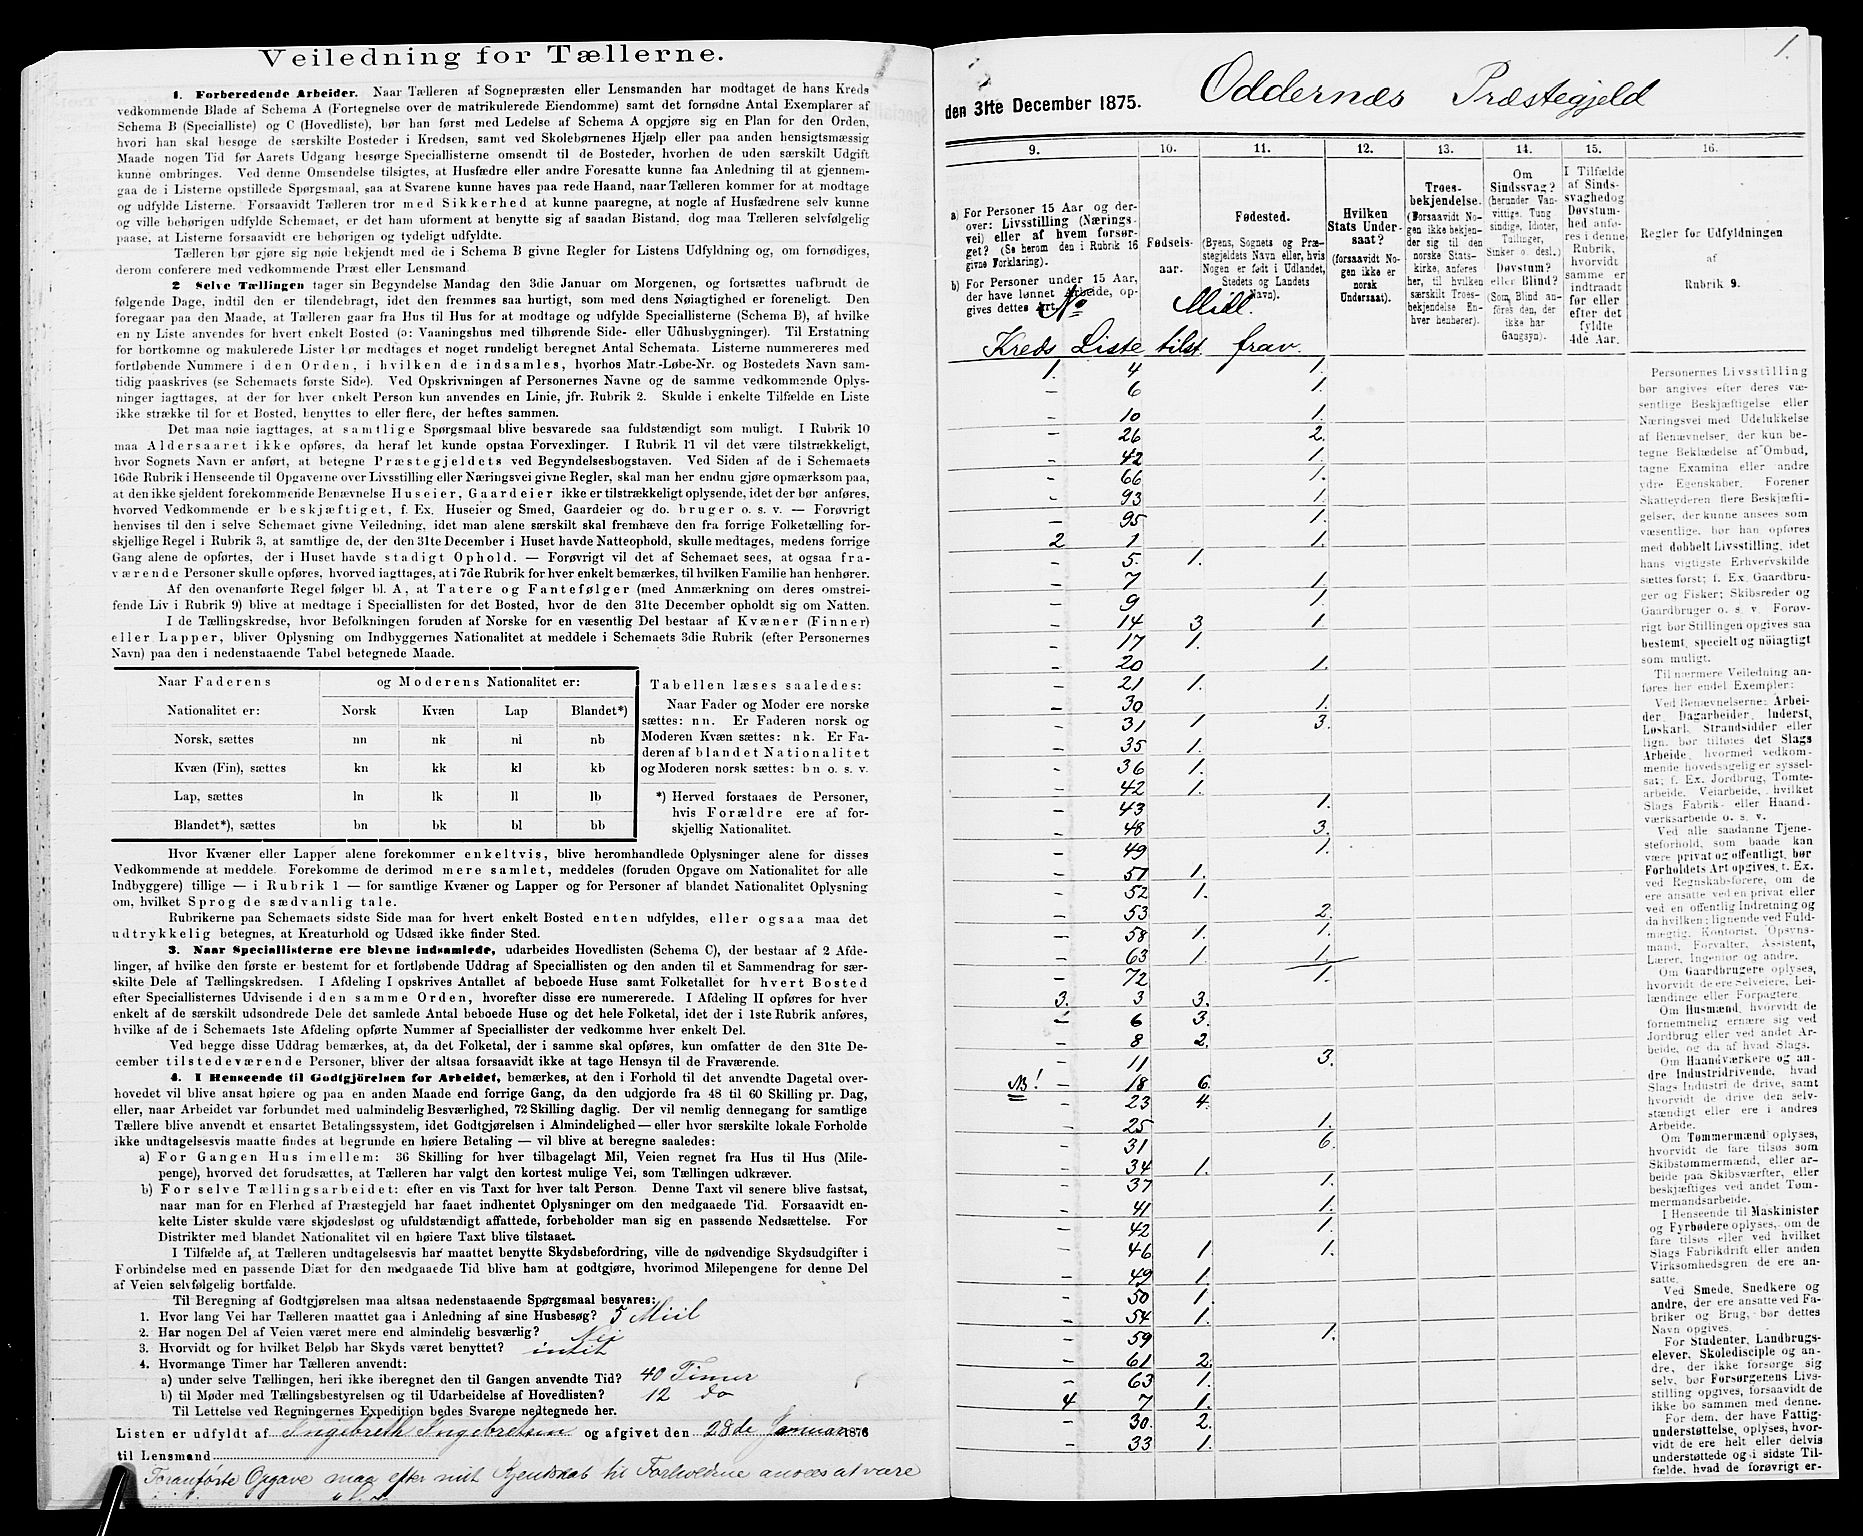 Veiledning for Tællerne.
1. Forberedende Arbeider. Naar Tælleren af Sognepræsten eller Lensmanden har modtaget de hans Kreds
vedkommende Blade af Schema A (Fortegnelse over de matrikulerede Eiendomme) samt det fornødne Antal Exemplarer af
Schema B (Specialliste) og C (Hovedliste), bør han først med Ledelse af Schema A opgjøre sig en Plan for den Orden,
hvori han skal besøge de særskilte Bosteder i Kredsen, samt ved Skolebørnenes Hjælp eller paa anden hensigtsmæssig
Maade nogen Tid før Aarets Udgang besørge Speciallisterne omsendt til de Bosteder, hvorhen de uden særskilt Udgift
kunne ombringes. Ved denne Omsendelse tilsigtes, at Husfædre eller andre Foresatte kunne faa Anledning til at gjennem-
gaa de i Listerne opstillede Spørgsmaal, saa at Svarene kunne haves paa rede Haand, naar Tælleren kommer for at modtage
og udfylde Listerne. Forsaavidt Tælleren tror med Sikkerhed at kunne paaregne, at nogle af Husfædrene selv kunne
og ville behørigen udfylde Schemaet, er det ham uforment at benytte sig af saadan Bistand, dog maa Tælleren selvfølgelig
paase, at Listerne forsaavidt ere behørigen og tydeligt udfyldte.
Tælleren bør gjøre sig nøie bekjendt med de i Schema B givne Regler for Listens Udfyldning og, om fornødiges,
derom conferere med vedkommende Præst eller Lensmand
2 Selve Tællingen tager sin Begyndelse Mandag den 3die Januar om Morgenen, og fortsættes uafbrudt de
følgende Dage, indtil den er tilendebragt, idet den fremmes saa hurtigt, som med dens Nøiagtighed er foreneligt. Den
foregaar paa den Maade, at Tælleren gaar fra Hus til Hus for at modtage og udfylde Speciallisterne (Schema B), af hvilke
en ny Liste anvendes for hvert enkelt Bosted (ɔ: Vaaningshus med tilhørende Side- eller Udhusbygninger). Til Erstatning
for bortkomne og makulerede Lister bør medtages et noget rundeligt beregnet Antal Schemata. Listerne nummereres med
fortløbende Nummere i den Orden, i hvilken de indsamles, hvorhos Matr.-Løbe-Nr. og Bostedets Navn sam-
tidig paaskrives (se Schemaets første Side). Ved Opskrivningen af Personernes Navne og de samme vedkommende Oplys-
ninger iagttages, at der for hver enkelt Person kun anvendes en Linie, jfr. Rubrik 2. Skulde i enkelte Tilfælde en Liste
ikke strække til for et Bosted, benyttes to eller flere, der heftes sammen.
Det maa nøie iagttages, at samtlige Spørgsmaal blive besvarede saa fuldstændigt som muligt. I Rubrik 10
maa Aldersaaret ikke opføres, da heraf let kunde opstaa Forvexlinger. I Rubrik 11 vil det være tilstrækkeligt,
hvor Sognets Navn er anført, at betegne Præstegjeldets ved Begyndelsesbogstaven. Ved Siden af de i Schemaets
16de Rubrik i Henseende til Opgaverne over Livsstilling eller Næringsvei givne Regler, skal man her endnu gjøre opmærksom paa,
at den ikke sjeldent forekommende Benævnelse Huseier, Gaardeier ikke er tilstrækkeligt oplysende, idet der bør anføres,
hvorved Vedkommende er beskjæftiget, f. Ex. Huseier og Smed, Gaardeier og do. bruger o. s. v. — Forøvrigt
henvises til den i selve Schemaet givne Veiledning, idet man alene særskilt skal fremhæve den fra forrige Folketælling for-
skjellige Regel i Rubrik 3, at samtlige de, der den 31te December i Huset havde Natteophold, skulle medtages, medens forrige
Gang alene de opførtes, der i Huset havde stadigt Ophold. — Forøvrigt vil det af Schemaet sees, at ogsaa fra-
værende Personer skulle opføres, hvorved iagttages, at i 7de Rubrik for hver enkelt bemærkes, til hvilken Familie han henhører.
Af den ovenanførte Regel følger bl. A., at Tatere og Fantefølger (med Anmærkning om deres omstrei-
fende Liv i Rubrik 9) blive at medtage i Speciallisten for det Bosted, hvor de den 31te December opholdt sig om Natten.
I de Tællingskredse, hvor Befolkningen foruden af Norske for en væsentlig Del bestaar af Kvæner (Finner)
eller Lapper, bliver Oplysning om Indbyggernes Nationalitet at meddele i Schemaets 3die Rubrik (efter Personernes
Navn) paa den i nedenstaaende Tabel betegnede Maade.
Naar Faderens og Moderens Nationalitet er:
Nationalitet er: Norsk Kvæn Lap Blandet*)
Norsk, sættes nn nk nl nb
Kvæn (Fin), sættes kn kk kl kb
Lap, sættes ln lk ll lb
Blandet*), sættes bn bk bl bb
Tabellen læses saaledes:
Naar Fader og Moder ere norske
sættes: nn. Er Faderen norsk og
Moderen Kvæn sættes: nk. Er Fa-
deren af blandet Nationalitet
og Moderen norsk sættes: bn o. s. v.
*) Herved forstaaes de Personer,
hvis Forældre ere af for-
skjellig Nationalitet.
Hvor Kvæner eller Lapper alene forekommer enkeltvis, blive heromhandlede Oplysninger alene for disses
Vedkommende at meddele. Forekomme de derimod mere samlet, meddeles (foruden Opgave om Nationalitet for alle
Indbyggere) tillige — i Rubrik 1 — for samtlige Kvæner og Lapper og for Personer af blandet Nationalitet Oplysning
om, hvilket Sprog de sædvanlig tale.
Rubrikerne paa Schemaets sidste Side maa for hvert enkelt Bosted enten udfyldes, eller ogsaa maa det
udtrykkelig betegnes, at Kreaturhold og Udsæd ikke finder Sted.
3. Naar Speciallisterne ere blevne indsamlede, udarbeides Hovedlisten (Schema C), der bestaar af 2 Afde-
linger, af hvilke den første er bestemt for et fortløbende Uddrag af Speciallisten og den anden til et Sammendrag for sær-
skilte Dele af Tællingskredsen. I Afdeling I opskrives Antallet af beboede Huse samt Folketallet for hvert Bosted
efter Speciallisternes Udvisende i den samme Orden, hvorefter disse ere numererede. I Afdeling II opføres for hver
enkelt af de særskilt udsondrede Dele det samlede Antal beboede Huse og det hele Folketal, idet der i 1ste Rubrik anføres,
hvilke af de i Schemaets 1ste Afdeling opførte Nummer af Speciallister der vedkomme hver enkelt Del.
Ved begge disse Uddrag bemærkes, at, da det Folketal, der i samme skal opføres, kun omfatter de den 31te De-
cember tilstedeværende Personer, bliver der altsaa forsaavidt ikke at tage Hensyn til de Fraværende.
4. I Henseende til Godtgjörelsen for Arbeidet, bemærkes, at den i Forhold til det anvendte Dagetal over-
hovedet vil blive ansat høiere og paa en anden Maade end forrige Gang, da den udgjorde fra 48 til 60 Skilling pr. Dag,
eller, naar Arbeidet var forbundet med ualmindelig Besværlighed, 72 Skilling daglig. Der vil nemlig dennegang for samtlige
Tællere blive anvendt et ensartet Betalingssystem, idet Godtgjørelsen i Almindelighed — eller hvor særskilte lokale Forholde
ikke undtagelsesvis maatte findes at begrunde en høiere Betaling — vil blive at beregne saaledes:
a) For Gangen Hus imellem: 36 Skilling for hver tilbagelagt Mil, Veien regnet fra Hus til Hus (Mile-
penge), hvorved det forudsættes, at Tælleren har valgt den kortest mulige Vei, som Tællingen udkræver.
b) For selve Tællingsarbeidet: efter en vis Taxt for hver talt Person. Denne Taxt vil senere blive fastsat,
naar man for en Flerhed af Præstegjeld har faaet indhentet Oplysninger om den medgaaede Tid. Forsaavidt en-
kelte Lister skulde være skjødesløst og ufuldstændigt affattede, forbeholder man sig en passende Nedsættelse. For
Distrikter med blandet Nationalitet vil en høiere Taxt blive tilstaaet.
I Tilfælde af, at Tælleren undtagelsesvis har maattet benytte Skydsbefordring, ville de nødvendige Skydsudgifter i
Forbindelse med en passende Diæt for den medgaaede Tid blive ham at godtgjøre, hvorimod Milepengene for denne Del
af Veien selvfølgelig bortfalde.
Til Beregning af Godtgjørelsen maa altsaa nedenstaaende Spørgsmaal besvares:
1. Hvor lang Vei har Tælleren maattet gaa i Anledning af sine Husbesøg? 5 Miil
2. Har nogen Del af Veien været mere end almindelig besværlig? Nei
3. Hvorvidt og for hvilket Beløb har Skyds været benyttet? intit
4. Hvormange Timer har Tælleren anvendt:
a) under selve Tællingen, heri ikke iberegnet den til Gangen anvendte Tid? 40 Timer
b) til Møder med Tællingsbestyrelsen og til Udarbeidelse af Hovedlisten? 12 do
Til Lettelse ved Regningernes Expedition bedes Svarene nedtegnede her.
Listen er udfyldt af Ingebreth Ingebretsen og afgivet den 28de Januar 1876
til Lensmand
Foranførte Opgave maa efter mit Kjendskab til Forholdene ansees at være
1.
den 31te December 1875. Oddernæs Præstegjeld
9. 10. 11. 12. 13. 14. 15. 16.
a) For Personer 15 Aar og der-
over: Livsstilling (Nærings-
vei) eller af hvem forsør-
get? (Se herom den i Rubrik 16
givne Forklaring).
b) For Personer under 15 Aar,
der have lønnet Arbeide, op-
gives dettes Art.
Fødsels-
aar.
Fødested.
(Byens, Sognets og Præ-
stegjeldets Navn eller, hvis
Nogen er født i Udlandet,
Stedets og Landets
Navn).
Hvilken
Stats Under-
saat?
(forsaavidt No-
gen ikke er
norsk
Undersaat).
Troes-
bekjendelse.
(Forsaavidt No-
gen ikke bekjen-
der sig til den
norske Stats-
kirke, anføres
her, til hvilken
særskilt Troes-
bekjendelse En-
hver henhører).
Om
Sindssvag?
(herunder Van-
vittige, Tung-
sindige, Idioter,
Tullinger,
Sinker o. desl.)
Døvstum?
eller Blind?
(Som Blind an-
føres den, der
ikke har
Gangsyn).
I Tilfælde
af Sinds-
svaghed og
Døvstum-
hed anfø-
res i denne
Rubrik,
hvorvidt
samme er
indtraadt
før eller
efter det
fyldte
4de Aar.
Regler for Udfyldningen
af
Rubrik 9.
No Midl.
Kreds Liste tilst. frav.
1. 4 1.
— 6 1.
— 10 1.
— 26 2.
— 42 1.
— 66 1.
— 93 1.
— 95 1.
2 1 1.
— 5. 1.
— 7 1.
— 9 1.
— 14 3 1.
— 17 1.
— 20 1.
— 21 1.
— 30 1.
— 31 1 3.
— 35 1.
— 36 1.
— 42 1.
— 43 1.
— 48 3.
— 49 1.
— 51 1.
— 52 1.
— 53 2.
— 58 1. 1.
— 63 1. 1.
— 72 1.
3. 3 3.
— 6 3.
— 8 2.
— 11 3.
NB! — 18 6.
— 23 4.
— 25 1.
— 31 6.
— 34 1.
— 37 1.
— 41 1.
— 42 1.
— 46 1. 1.
— 49 1.
— 50 1.
— 54 1.
— 59 1.
— 61 2.
— 63 1.
4 7 1.
— 30. 2.
— 33 1.
Personernes Livsstilling
bør angives efter deres væ-
sentlige Beskjæftigelse eller
Næringsvei med Udelukkelse
af Benævnelser, der kun be-
tegne Beklædelse af Ombud,
tagne Examina eller andre
ydre Egenskaber. Forener
Skatteyderen flere Beskjæfti-
gelser, der kunne ansees som
væsentlige, bør han opføres
med dobbelt Livsstilling, idet
hans vigtigste Erhvervskilde
sættes først; f. Ex. Gaardbru-
ger og Fisker; Skibsreder og
Gaardbruger o. s. v. Forøv-
rigt bør Stillingen opgives saa
bestemt, specielt og nöiagtigt
som muligt.
Til nærmere Veiledning an-
føres her endel Exempler:
Ved Benævnelserne: Arbei-
der, Dagarbeider, Inderst,
Løskarl, Strandsidder eller
lign. bør tilføies det Slags
Arbeide, hvormed vedkom-
mende hovedsagelig er syssel-
sat; f. Ex. Jordbrug, Tomte-
arbeide, Veiarbeide, hvilket
Slags Fabrik- eller Haand-
værksarbeide o. s. v.
Ved alle saadanne Tjene-
steforhold, som baade kan
være privat og offentligt, bør
Forholdets Art opgives, t. Ex.
ved Regnskabsførere, om de
ere ansatte ved en privat eller
ved en offentlig Indretning og
da hvilken; lignende ved Fuld-
mægtig, Kontorist, Opsyns-
mand, Forvalter, Assistent,
Lærer, Ingeniør og andre.
Om Gaardbrugere oplyses,
hvorvidt de ere Selveiere, Lei-
lændinge eller Forpagtere
Om Husmænd, hvorvidt de
fornemmelig ernære sig ved
Jordbrug eller ved andet Ar-
beide, og da af hvad Slags.
Om Haandværkere og an-
dre Industridrivende, hvad
Slags Industri de drive, samt
hvorvidt de drive den selv-
stændigt eller ere i andres
Arbeide.
Om Tømmermænd oplyses,
hvorvidt de fare tilsøs som
Skibstømmermænd, eller ar-
beide paa Skibsværfter, eller
beskjæftiges ved andet Tøm-
mermandsarbeide.
I Henseende til Maskinister
og Fyrbødere oplyses, om de
fare tilsøs eller ved hvilket
Slags Fabrikdrift eller anden
Virksomhedsgren de ere an-
satte.
Ved Smede, Snedkere og
andre, der ere ansatte ved Fa-
briker og Brug, bør dettes
Navn opgives.
For Studenter, Landbrugs-
elever, Skoledisciple og an-
dre, der ikke forsørge sig
selv, bør Forsørgerens Livs-
stilling opgives, forsaavidt de
ikke bo sammen med denne.
For dem, der have Fattig-
understøttelse, oplyses, hvor-
vidt de ere helt eller delvis
understøttede og i sidste Til-
fælde, hvad de forøvrigt er-